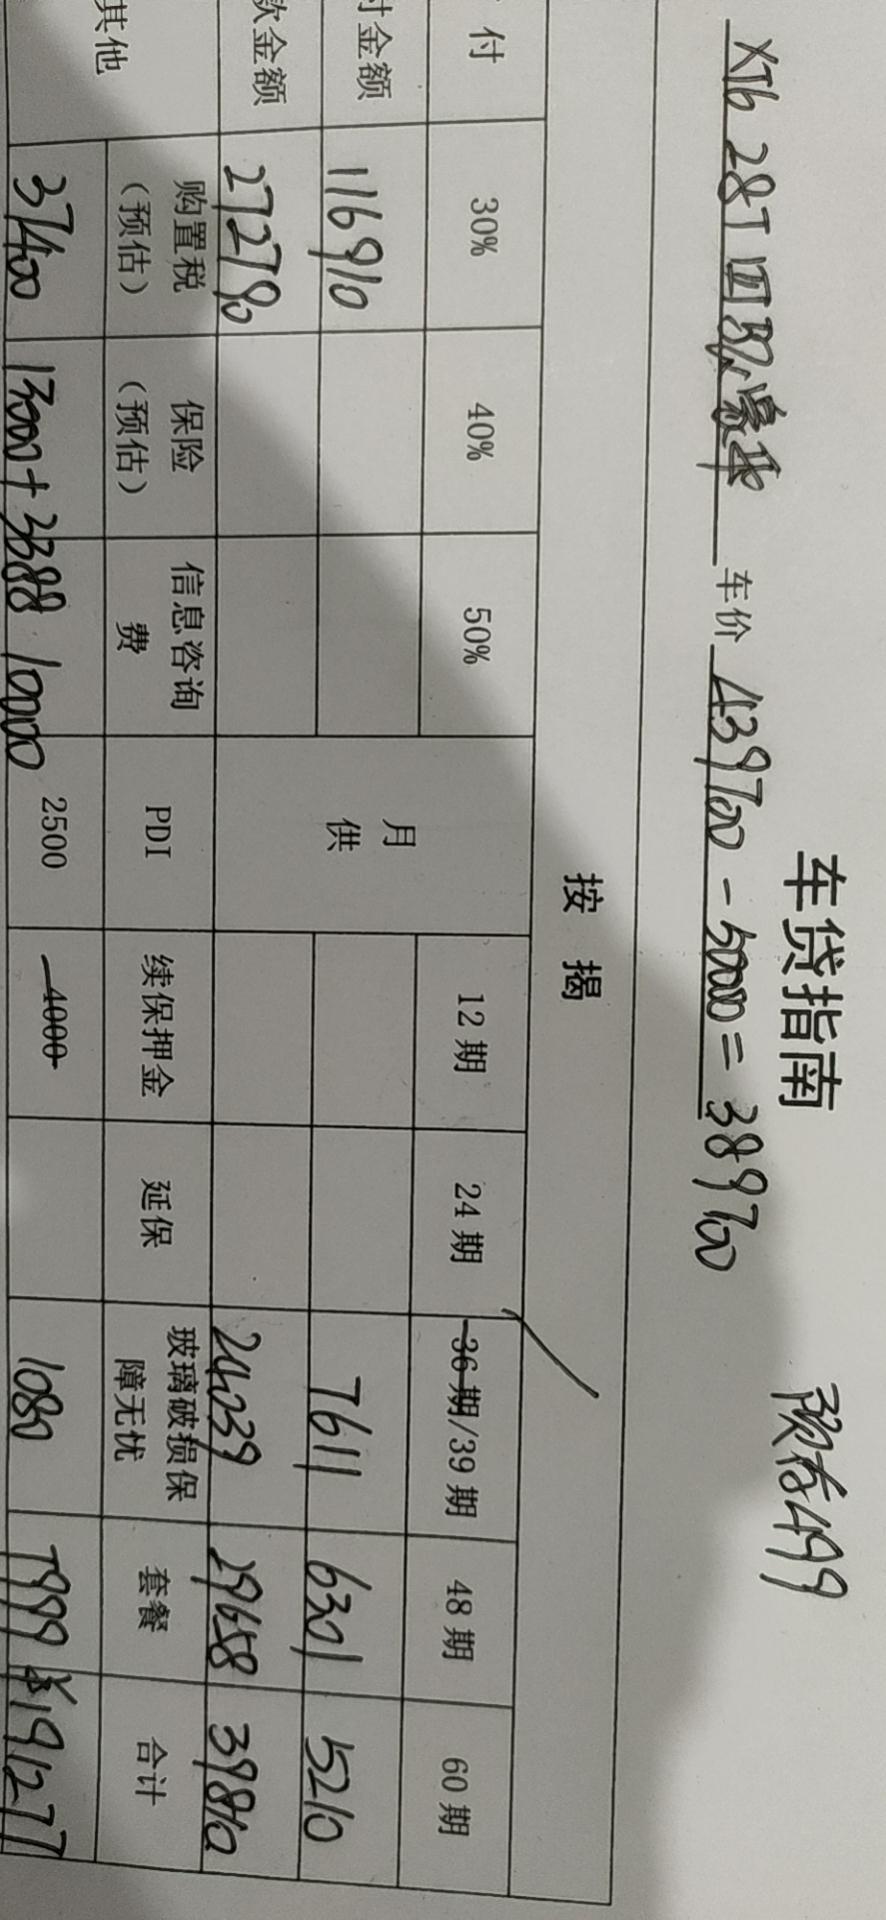 车贷指南
预存499
XT6 28T 四驱豪华 车价 439700 - 50000 = 389700
按 揭
付 30% 40% 50% 月供 12期 24期 36期/39期 48期 60期
付金额 116910 7611 6301 5210
款金额 272790 24039 29658 39810
其他 购置税（预估） 保险（预估） 信息咨询费 PDI 续保押金 延保 玻璃破损保障无忧 套餐 合计
37400 13000+3388 10000 2500 4000 1080 7999 ¥191277